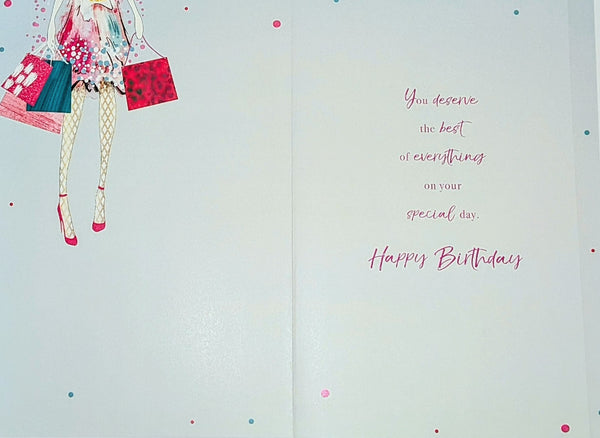 You deserve
the best
of everything
on your
special day.
Happy Birthday